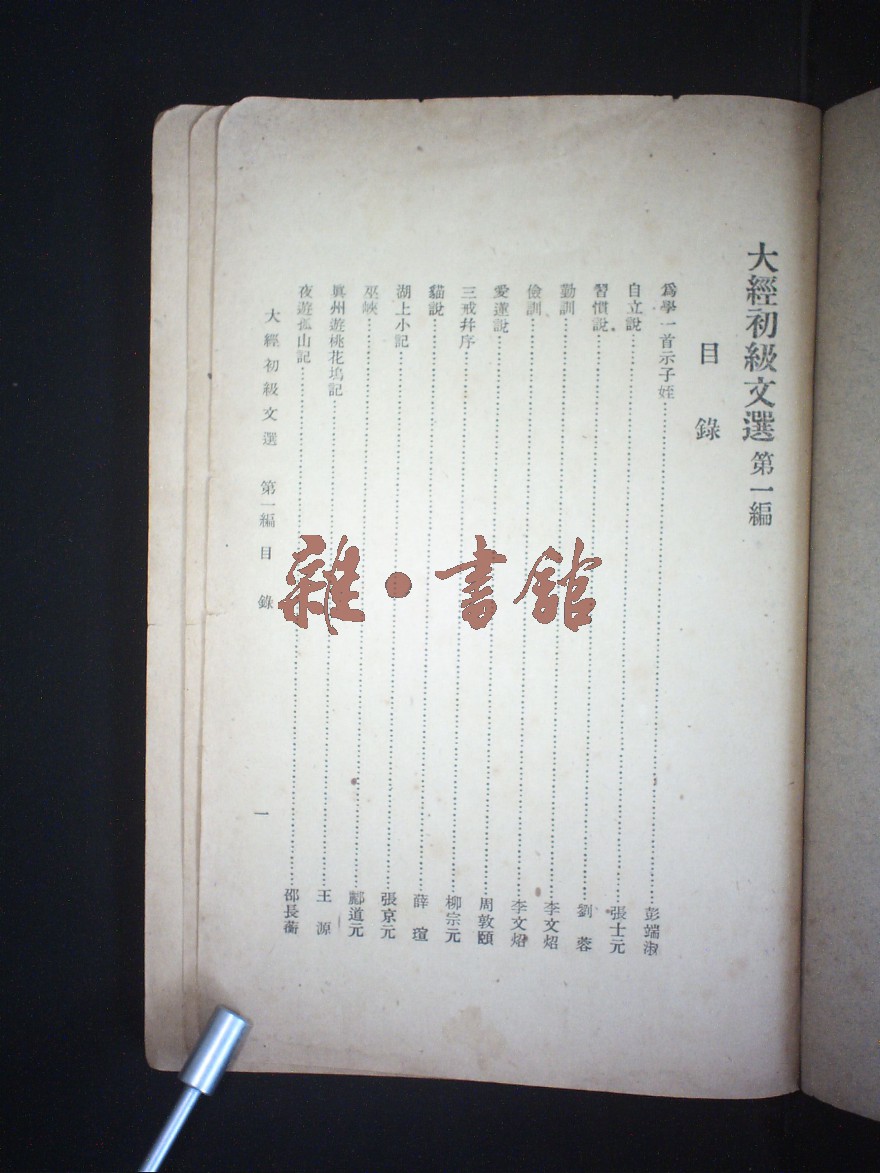 大經初級文選 第一編
目錄
爲學一首示子姪……彭端淑
自立說……張士元
習慣說……劉蓉
勤訓……李文炤
儉訓……李文炤
愛蓮說……周敦頤
三戒幷序……柳宗元
貓說……薛瑄
湖上小記……張京元
巫峽……酈道元
眞州遊桃花塢記……王源
夜遊孤山記……邵長蘅
大經初級文選 第一編 目錄 一
雜·書館